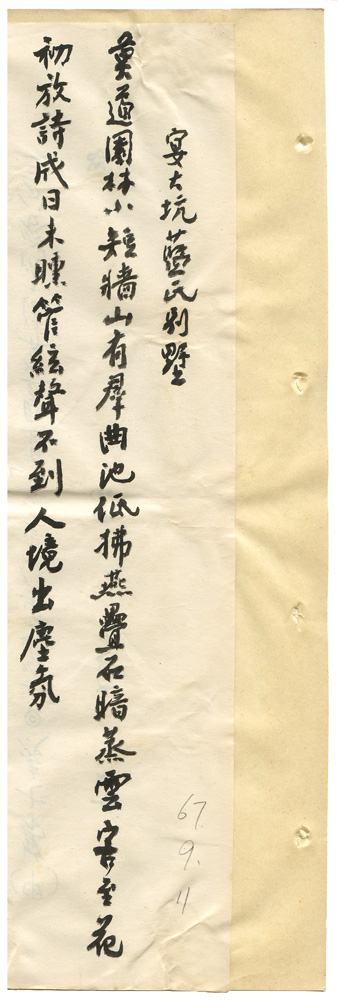 宴大坑藍氏別墅
莫道園林小短牆山有羣曲池低拂燕疊石暗蒸雲客至花
初放詩成日未曛管絃聲不到人境出塵氛
67.9.11